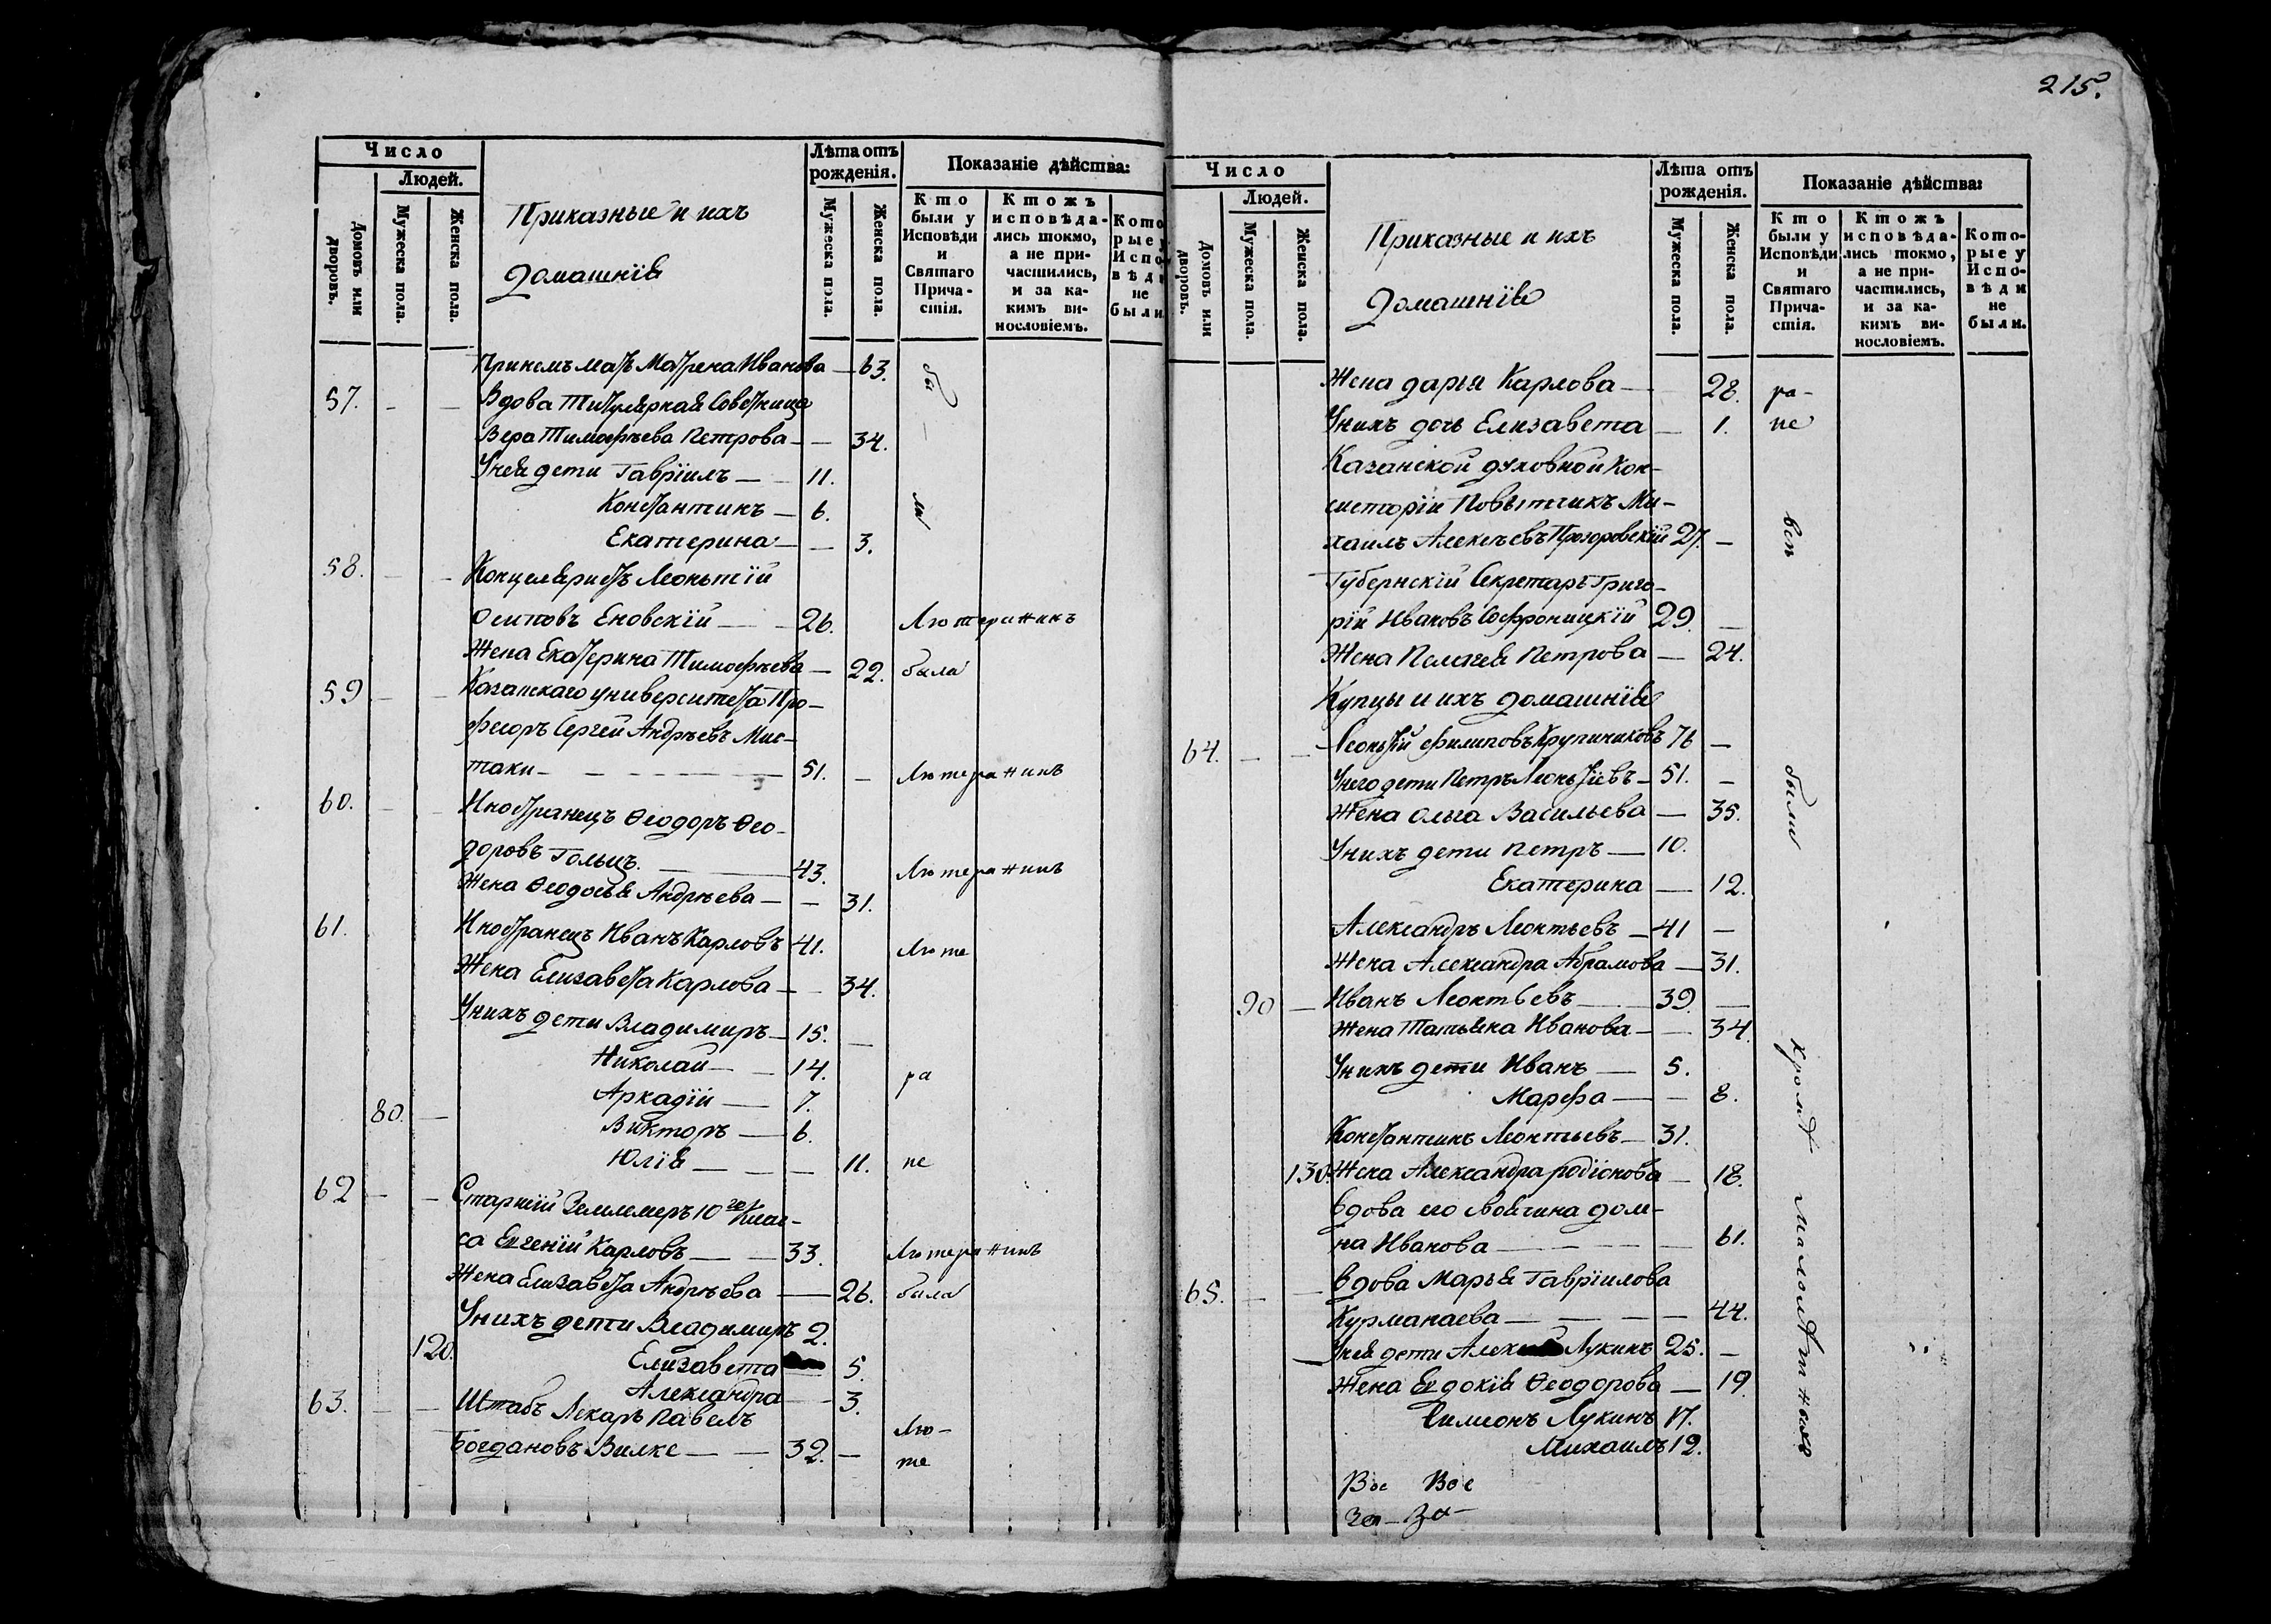 215.
Число
Людей.
Домовъ или дворовъ.
Мужеска пола.
Женска пола.
Приказные и ихъ
Домашнія
Лѣта отъ рожденія.
Мужеска пола.
Женска пола.
Показаніе дѣйства:
Кто были у Исповѣди и Святаго Прича-стія.
Ктожъ исповѣда-лись токмо, а не при-частились, и за ка-кимъ ви-нословіемъ.
Кото рые у Испо вѣди не были.
При немъ мать Матрена Иванова — 63. бы
57. Вдова Титулярная Советница
Вера Тимофѣева Петрова — 34.
У нея дети Гавріилъ — 11.
Константинъ — 6. ли
Екатерина — 3.
58. Концеляристъ Леонтій
Осиповъ Еновскій — 26. Лютеранинъ
Жена Екатерина Тимофѣева — 22. была
59 Казанскаго университета Про-
фесоръ Сергей Андрѣевъ Мис-
таки — 51. — Лютеранинъ
60. Иностранецъ Ѳеодоръ Ѳео-
доровъ Гольцъ. — 43. Лютеранинъ
Жена Ѳеодосья Андрѣева — 31.
61. Иностранецъ Иванъ Карловъ 41. Люте
Жена Елизавета Карлова — 34.
У нихъ дети Владимиръ — 15. —
Николай — 14. ра
80. Аркадій — 7.
Викторъ — 6.
Юлія — 11. не
62 Старшій Землемеръ 10го Клас-
са Евгеній Карловъ — 33. Лютеранинъ
Жена Елизавета Андрѣева — 26. была
У нихъ дети Владимиръ 2.
120. Елизавета 5.
Александра — 3.
63. Штабъ Лекарь Павелъ Лю-
Богдановъ Вилке — 32. — те
Число
Людей.
Домовъ или дворовъ.
Мужеска пола.
Женска пола.
Приказные и ихъ
Домашнія
Лѣта отъ рожденія.
Мужеска пола.
Женска пола.
Показаніе дѣйства:
Кто были у Исповѣди и Святаго Прича-стія.
Ктожъ исповѣда-лись токмо, а не при-частились, и за ка-кимъ ви-нословіемъ.
Кото-рые у Испо-вѣди не были.
Жена дарья Карлова — 28. ра-
У нихъ дочь Елизавета — 1. не
Казанской духовной Кон-
систоріи Повытчикъ Ми-
хаилъ Алексѣевъ Прозоровскій 27. — всѣ
Губернскій Секретарь Григо-
рій Ивановъ Софроницкій 29. —
Жена Пелагея Петрова — 24.
Купцы и ихъ домашнія
64. Леонтій Филиповъ Крупениковъ 76 —
У него дети Петръ Леонтіевъ — 51. — были
Жена Ольга Васильева — 35.
У нихъ дети Петръ — 10.
Екатерина — 12.
Александръ Леонтьевъ — 41 —
Жена Александра Абрамова — 31.
90 — Иванъ Леонтьевъ — 39. —
Жена Татьяна Иванова — 34.
У нихъ дети Иванъ — 5. кромѣ
Марфа — 8.
Константинъ Леонтьевъ — 31.
130. Жена Александра родіонова — 18.
вдова его своячина дом- малолѣтныхъ
на Иванова — 61.
65. вдова Марья Гавріилова
Курманаева — 44.
У нея дети Лукинъ 25. —
Жена Евдокія Ѳеодорова — 19
Симеонъ Лукинъ 17.
Михаилъ 12.
Вос Вос
За- За-